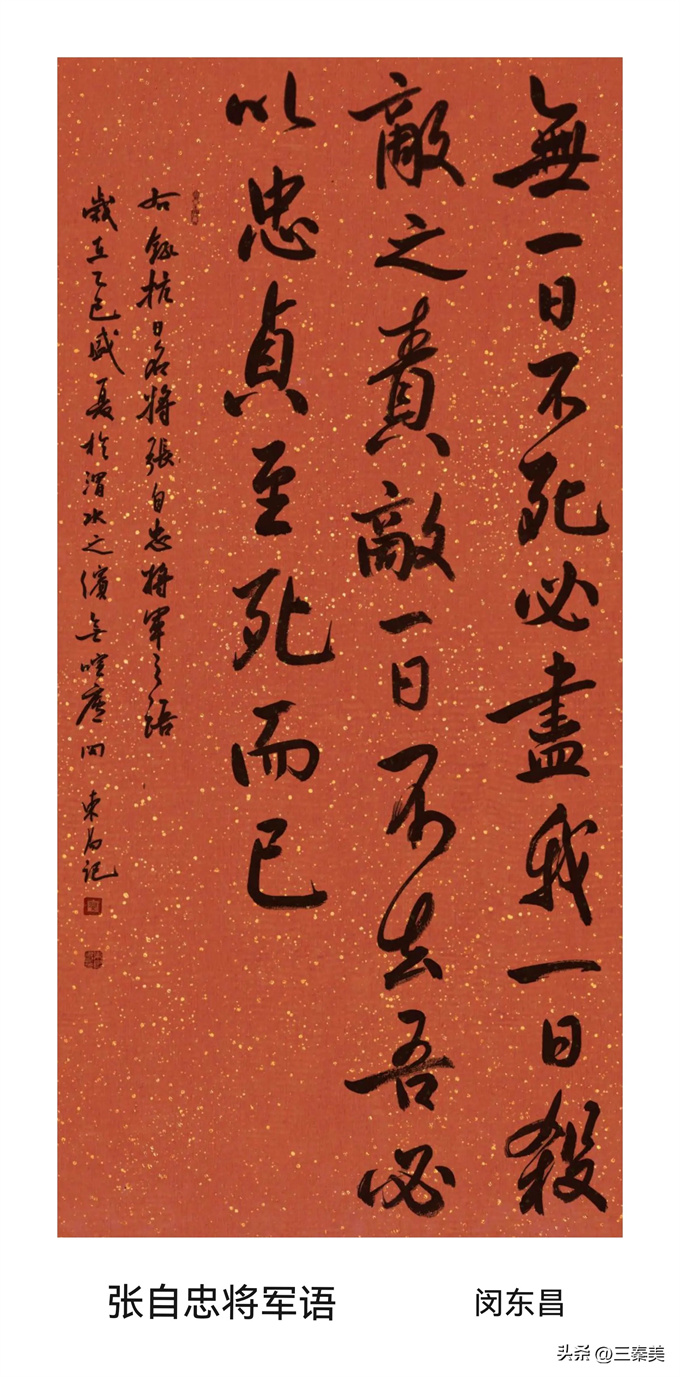 無一日不死必盡我一日殺
敵之責敵一日不去吾必
以忠貞至死而已
右錄抗日名將張自忠將軍之語
歲在乙巳盛夏於渭水之濱無喧廬閔東昌記
张自忠将军语
闵东昌
头条 @三秦美